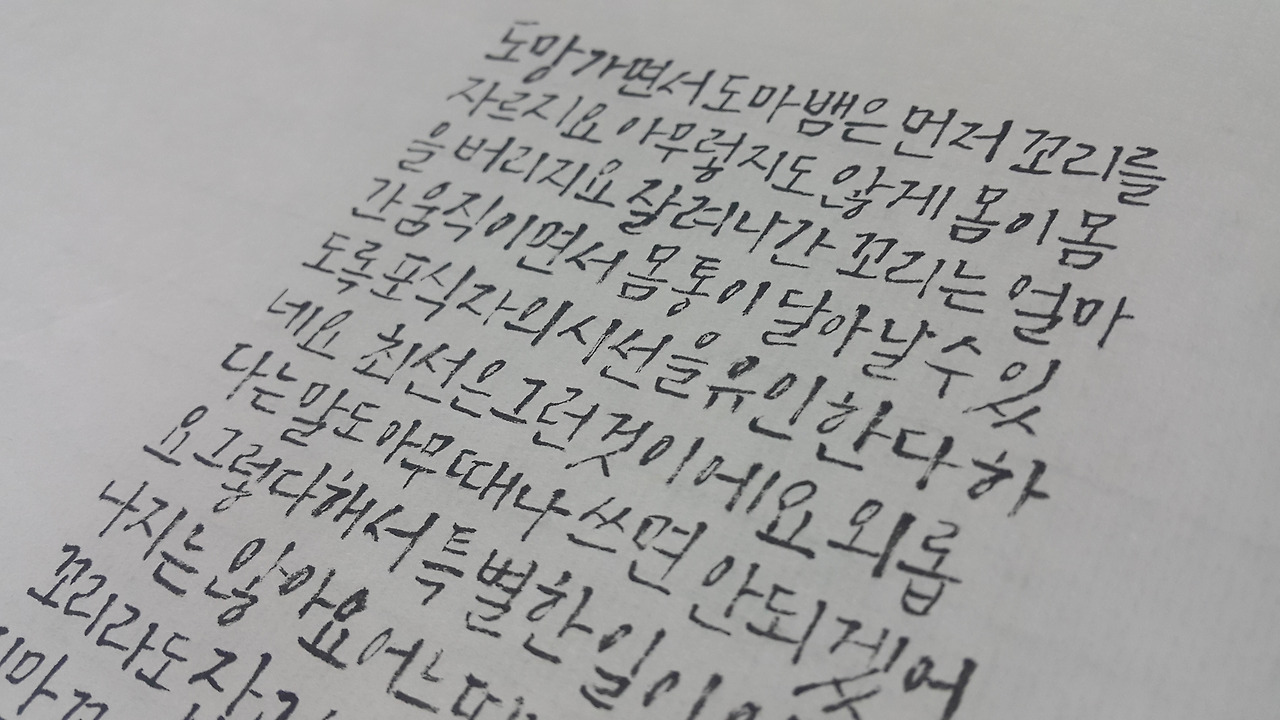 도망가면서 도마뱀은 먼저 꼬리를
자르지요 아무렇지도 않게 몸이 몸
을 버리지요 잘려나간 꼬리는 얼마
간 움직이면서 몸통이 달아날 수 있
도록 포식자의 시선을 유인한다 하
네요 최선은 그런 것이에요 외롭
다는 말도 아무 때나 쓰면 안되겠어
요 그렇다 해서 특별한 일이
나지는 않아요 어느
꼬리라도